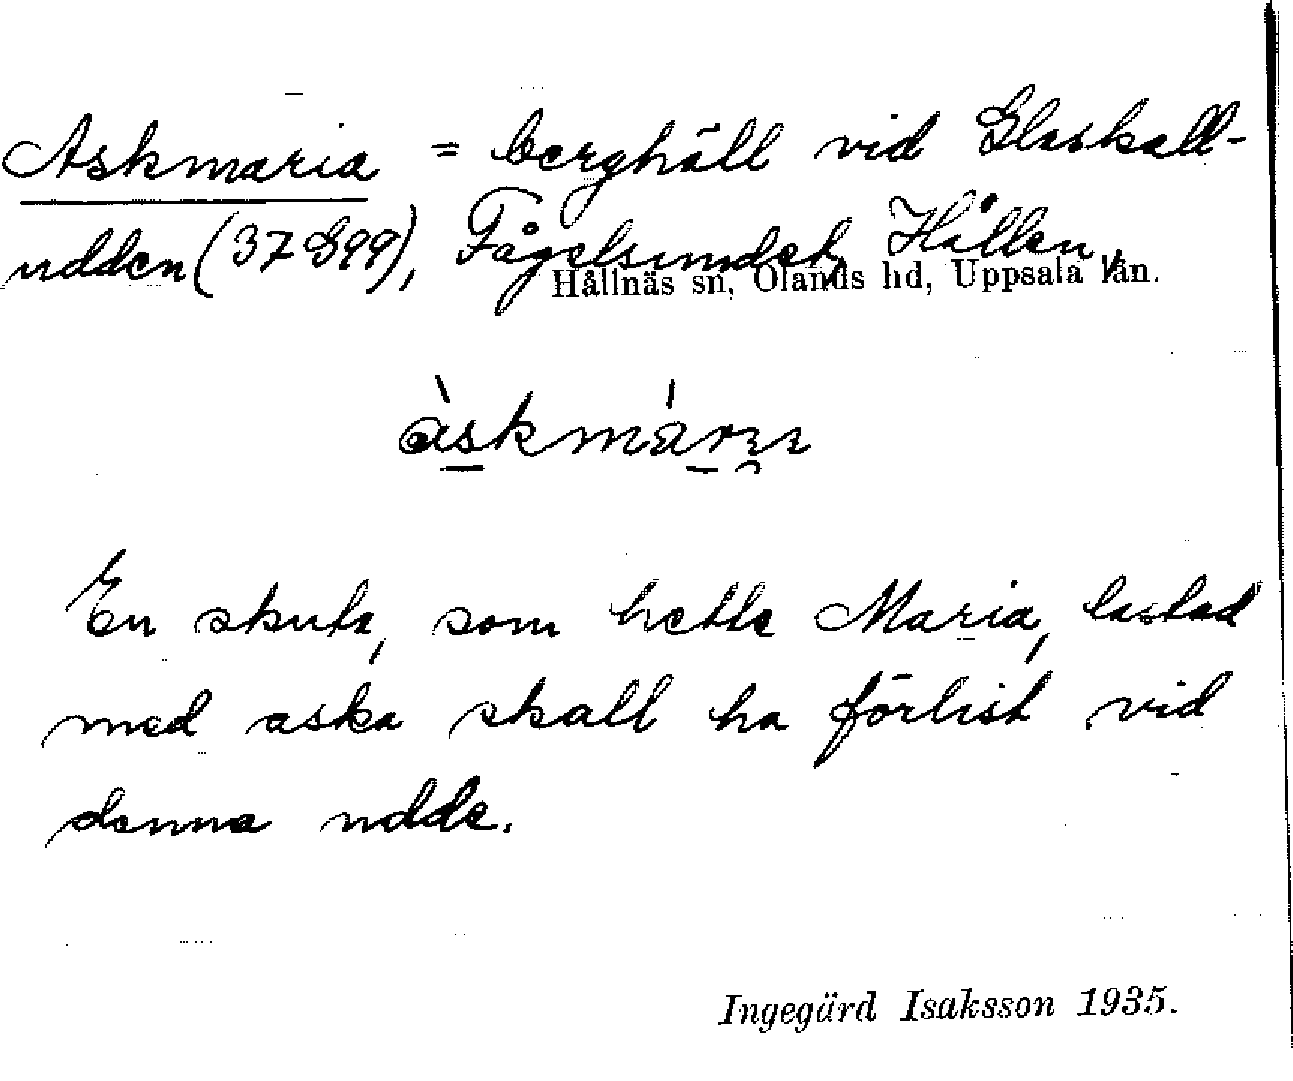 Askmaria = berghäll vid Glaskall-
udden (37 G99), Fågelsundet, Hållen,
Hållnäs sn, Olands hd, Uppsala län.
En skuta, som hette Maria, lastad
med aska skall ha förlist vid
denna udde.
Ingegärd Isaksson 1935.